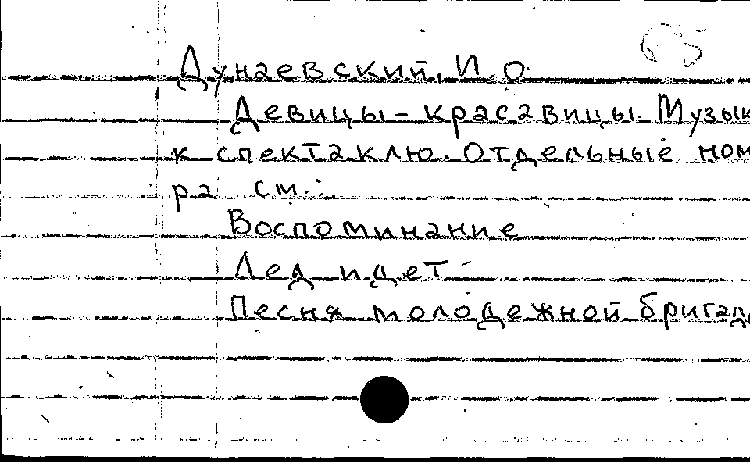 Дунаевский, И. О.
Девицы - красавицы. Музык
к спектаклю. Отдельные ном
ра см.:
Воспоминание
Лед идет
Песня молодежной бригад